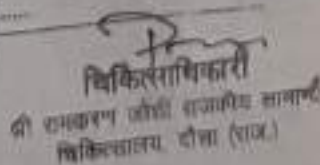 चिकित्साधिकारी
श्री रामकरण जोशी राजकीय सामान्य
चिकित्सालय, दौसा (राज.)